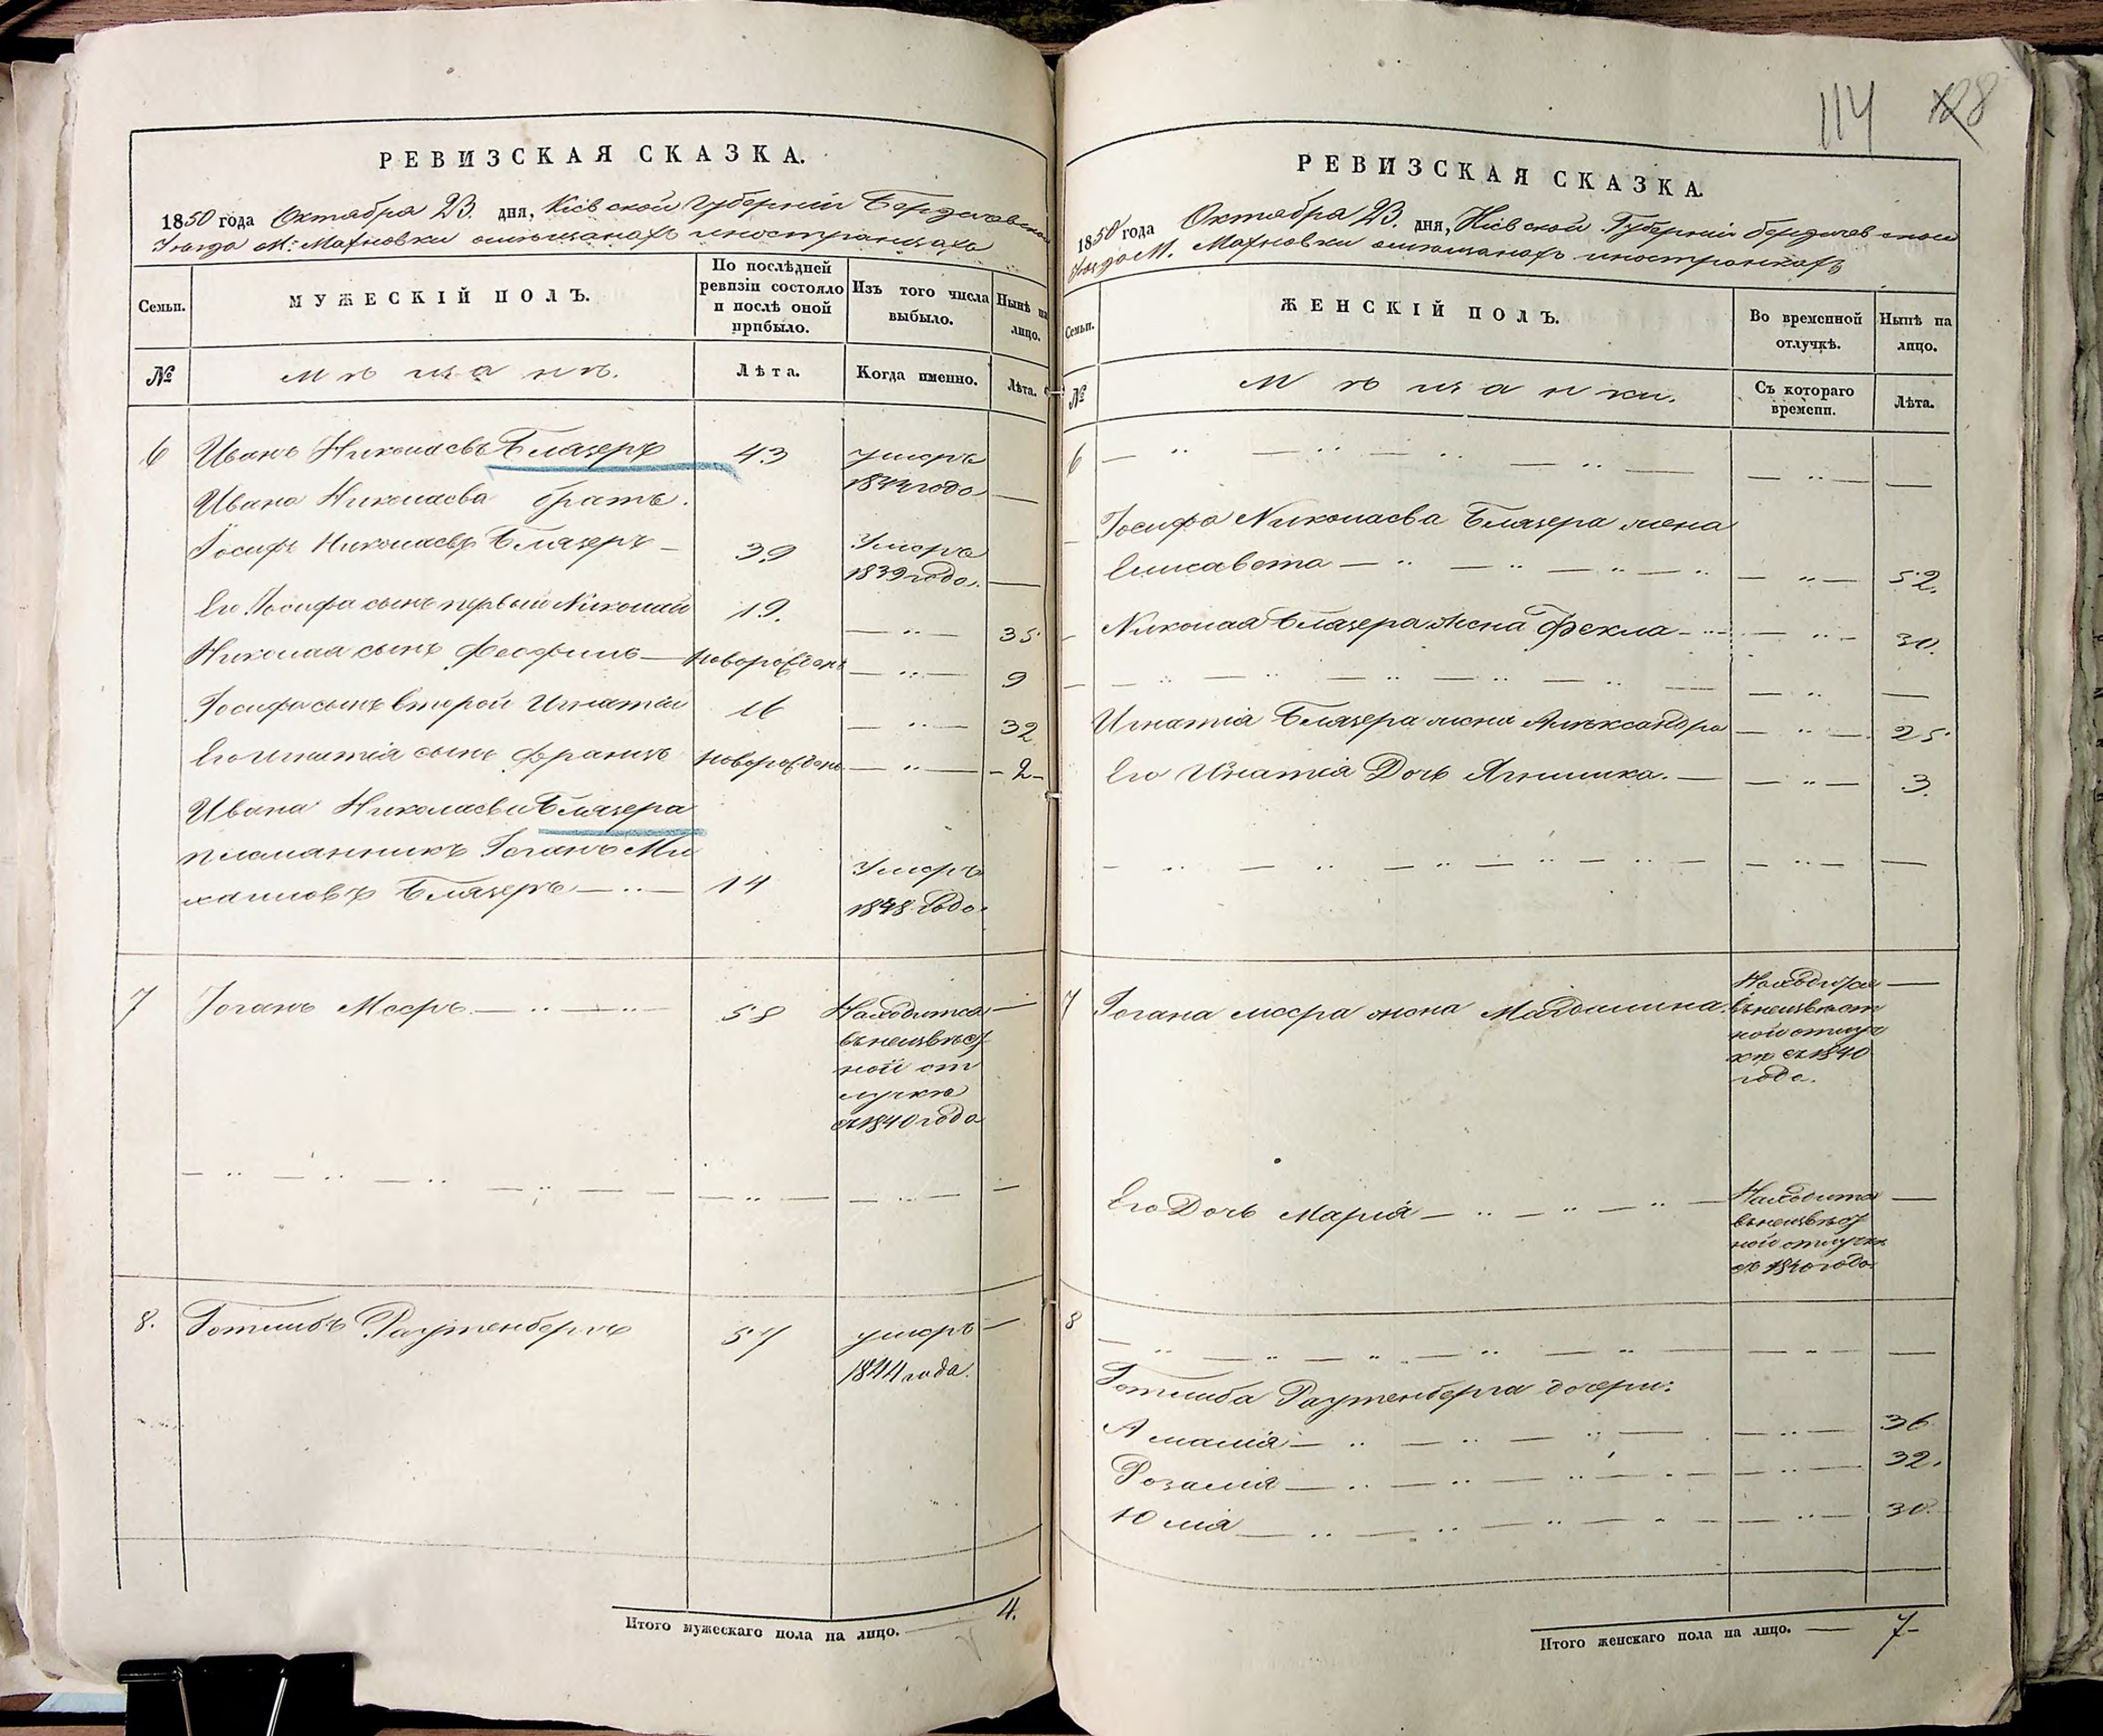 РЕВИЗСКАЯ СКАЗКА.
1850 года Октября 23. дня, Кіевской Губерніи Бердичевской
Уезда М: Махновки о мѣщанахъ иностранцахъ
Семьи.
МУЖЕСКІЙ ПОЛЪ.
По послѣдней ревизіи состояло и послѣ оной прибыло.
Изъ того числа выбыло.
Нынѣ на лицо.
№
Мѣщане.
Лѣта.
Когда именно.
Лѣта.
6 Иванъ Николаевъ Блазеръ 43 умеръ
1844 года —
Ивана Николаева братъ.
Іосифъ Николаевъ Блазеръ — 39 Умеръ
1839 года. —
Его Іосифа сынъ первый Николай 19. — „ — 35
Николая сынъ Феофиль — новорожденъ — „ — 9
Іосифа сынъ второй Игнатій 16 — „ — 32
Его Игнатія сынъ Францъ новорожденъ — „ — - 2 -
Ивана Николаева Блазера
племянникъ Іоганъ Ми
хайловъ Блазеръ — „ — 14 Умеръ
1848 Года.
7 Іоганъ Мееръ — „ — „ — 58 Находится —
въ неизвѣст
ной от
лучкѣ
съ 1840 года
8. Готлибъ Раутенбергъ 57 умеръ —
1844 года.
Итого мужескаго пола на лицо. — 4.
114 128
РЕВИЗСКАЯ СКАЗКА.
1850 года Октября 23. дня, Кіевской Губерніи Бердичевской
Уезда М. Махновки о мѣщанахъ иностранкахъ
Семьи.
ЖЕНСКІЙ ПОЛЪ.
Во временной отлучкѣ.
Нынѣ на лицо.
№
Мѣщанки.
Съ котораго времени.
Лѣта.
6 — „ — „ — „ — „ — — „ — —
Іосифа Николаева Блазера жена
Елисавета — „ — „ — „ — „ — „ — 52.
Николая Блазера жена Фекла — „ — „ — 30.
— — „ — „ — „ — „ — „ — — „ —
Игнатія Блазера жена Александра — „ — 25
Его Игнатія Дочь Ягнишка. — — „ — 3.
— „ — „ — „ — „ — „ — — „ — —
7 Іогана Меера жена Магдалина. Находится —
въ неизвѣст
ной отлуч
кѣ съ 1840
года.
Его Дочь Марія — „ — „ — „ — Находится —
въ неизвѣст
ной отлучкѣ
съ 1840 года
8 — „ — „ — „ — „ — „ — — „ — —
Готлиба Раутенберга дочери:
Амалія — „ — „ — „ — — „ — 36
Розалія — „ — „ — „ — — „ — 32.
Юлія — „ — „ — „ — — „ — 30.
Итого женскаго пола на лицо. — 7-